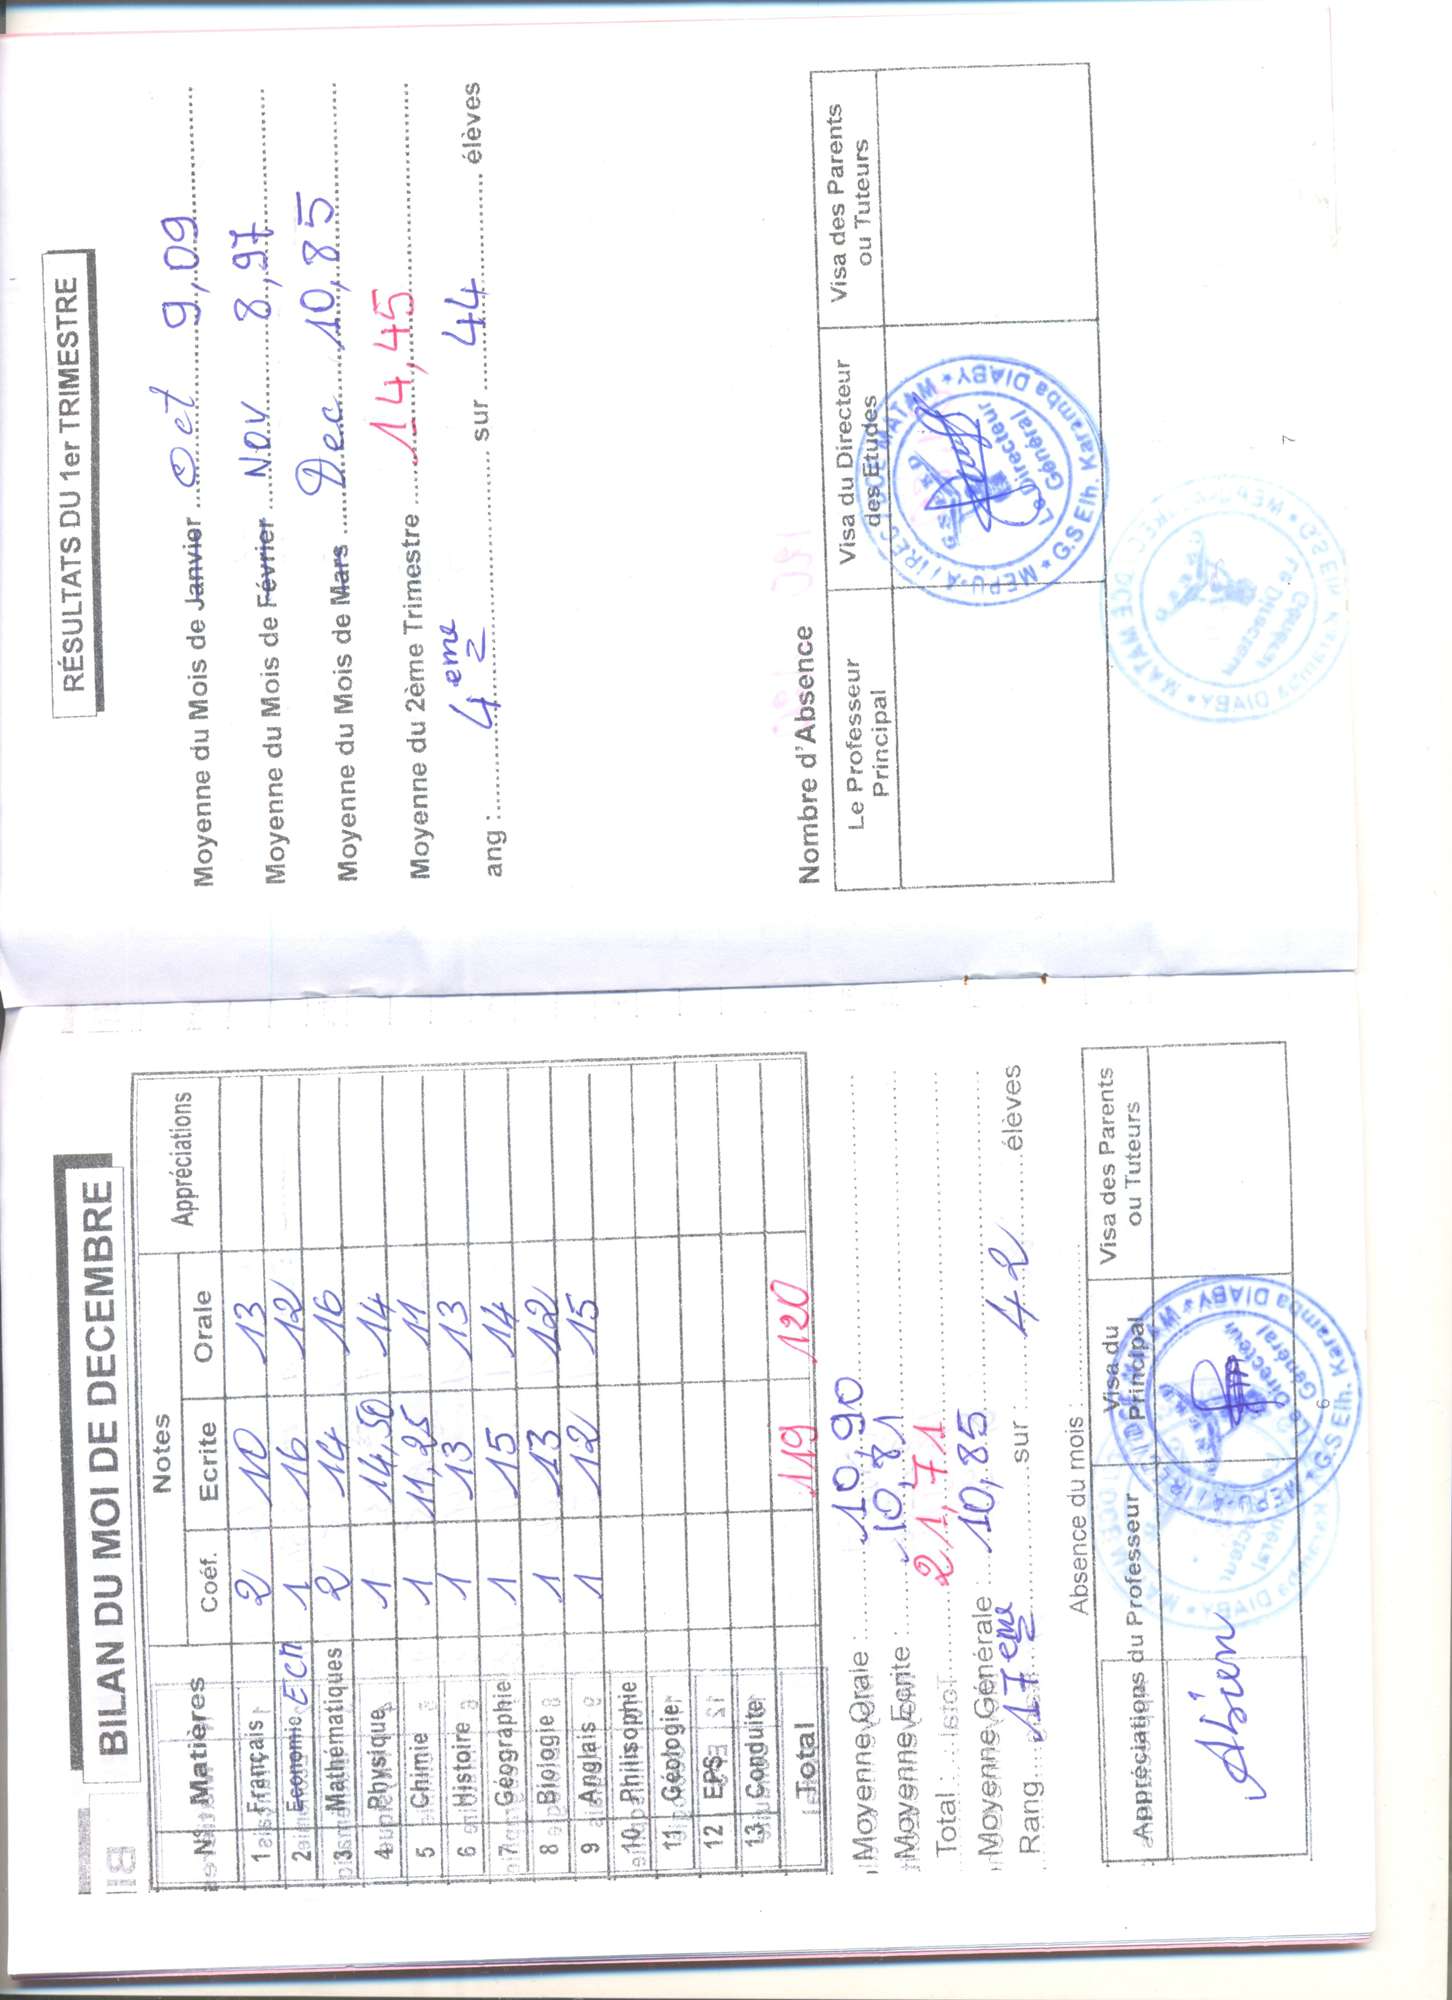 BILAN DU MOI DE DECEMBRE
N° Matières Notes Appréciations
Coéf. Ecrite Orale
1 Français 2 10 13
2 Economie ECM 1 16 12
3 Mathématiques 2 14 16
4 Physique 1 14,50 14
5 Chimie 1 11,25 11
6 Histoire 1 13 13
7 Géographie 1 15 14
8 Biologie 1 13 12
9 Anglais 1 12 15
10 Philisophie
11 Géologie
12 EPS
13 Conduite
Total 119 120
Moyenne Orale : 10,90
Moyenne Ecrite : 10,81
Total : 21,71
Moyenne Générale : 10,85
Rang : 17eme sur : 42 élèves
Absence du mois :
Appréciations du Professeur Visa du Principal Visa des Parents ou Tuteurs
A Bien
6
RÉSULTATS DU 1er TRIMESTRE
Moyenne du Mois de Janvier Oct 9,09
Moyenne du Mois de Février Nov 8,97
Moyenne du Mois de Mars Dec 10,85
Moyenne du 2ème Trimestre 14,45
ang : 4eme sur 44 élèves
Nombre d'Absence
Le Professeur Principal Visa du Directeur des Etudes Visa des Parents ou Tuteurs
G.S Elh. Karamba DIABY
Le Directeur Général
7